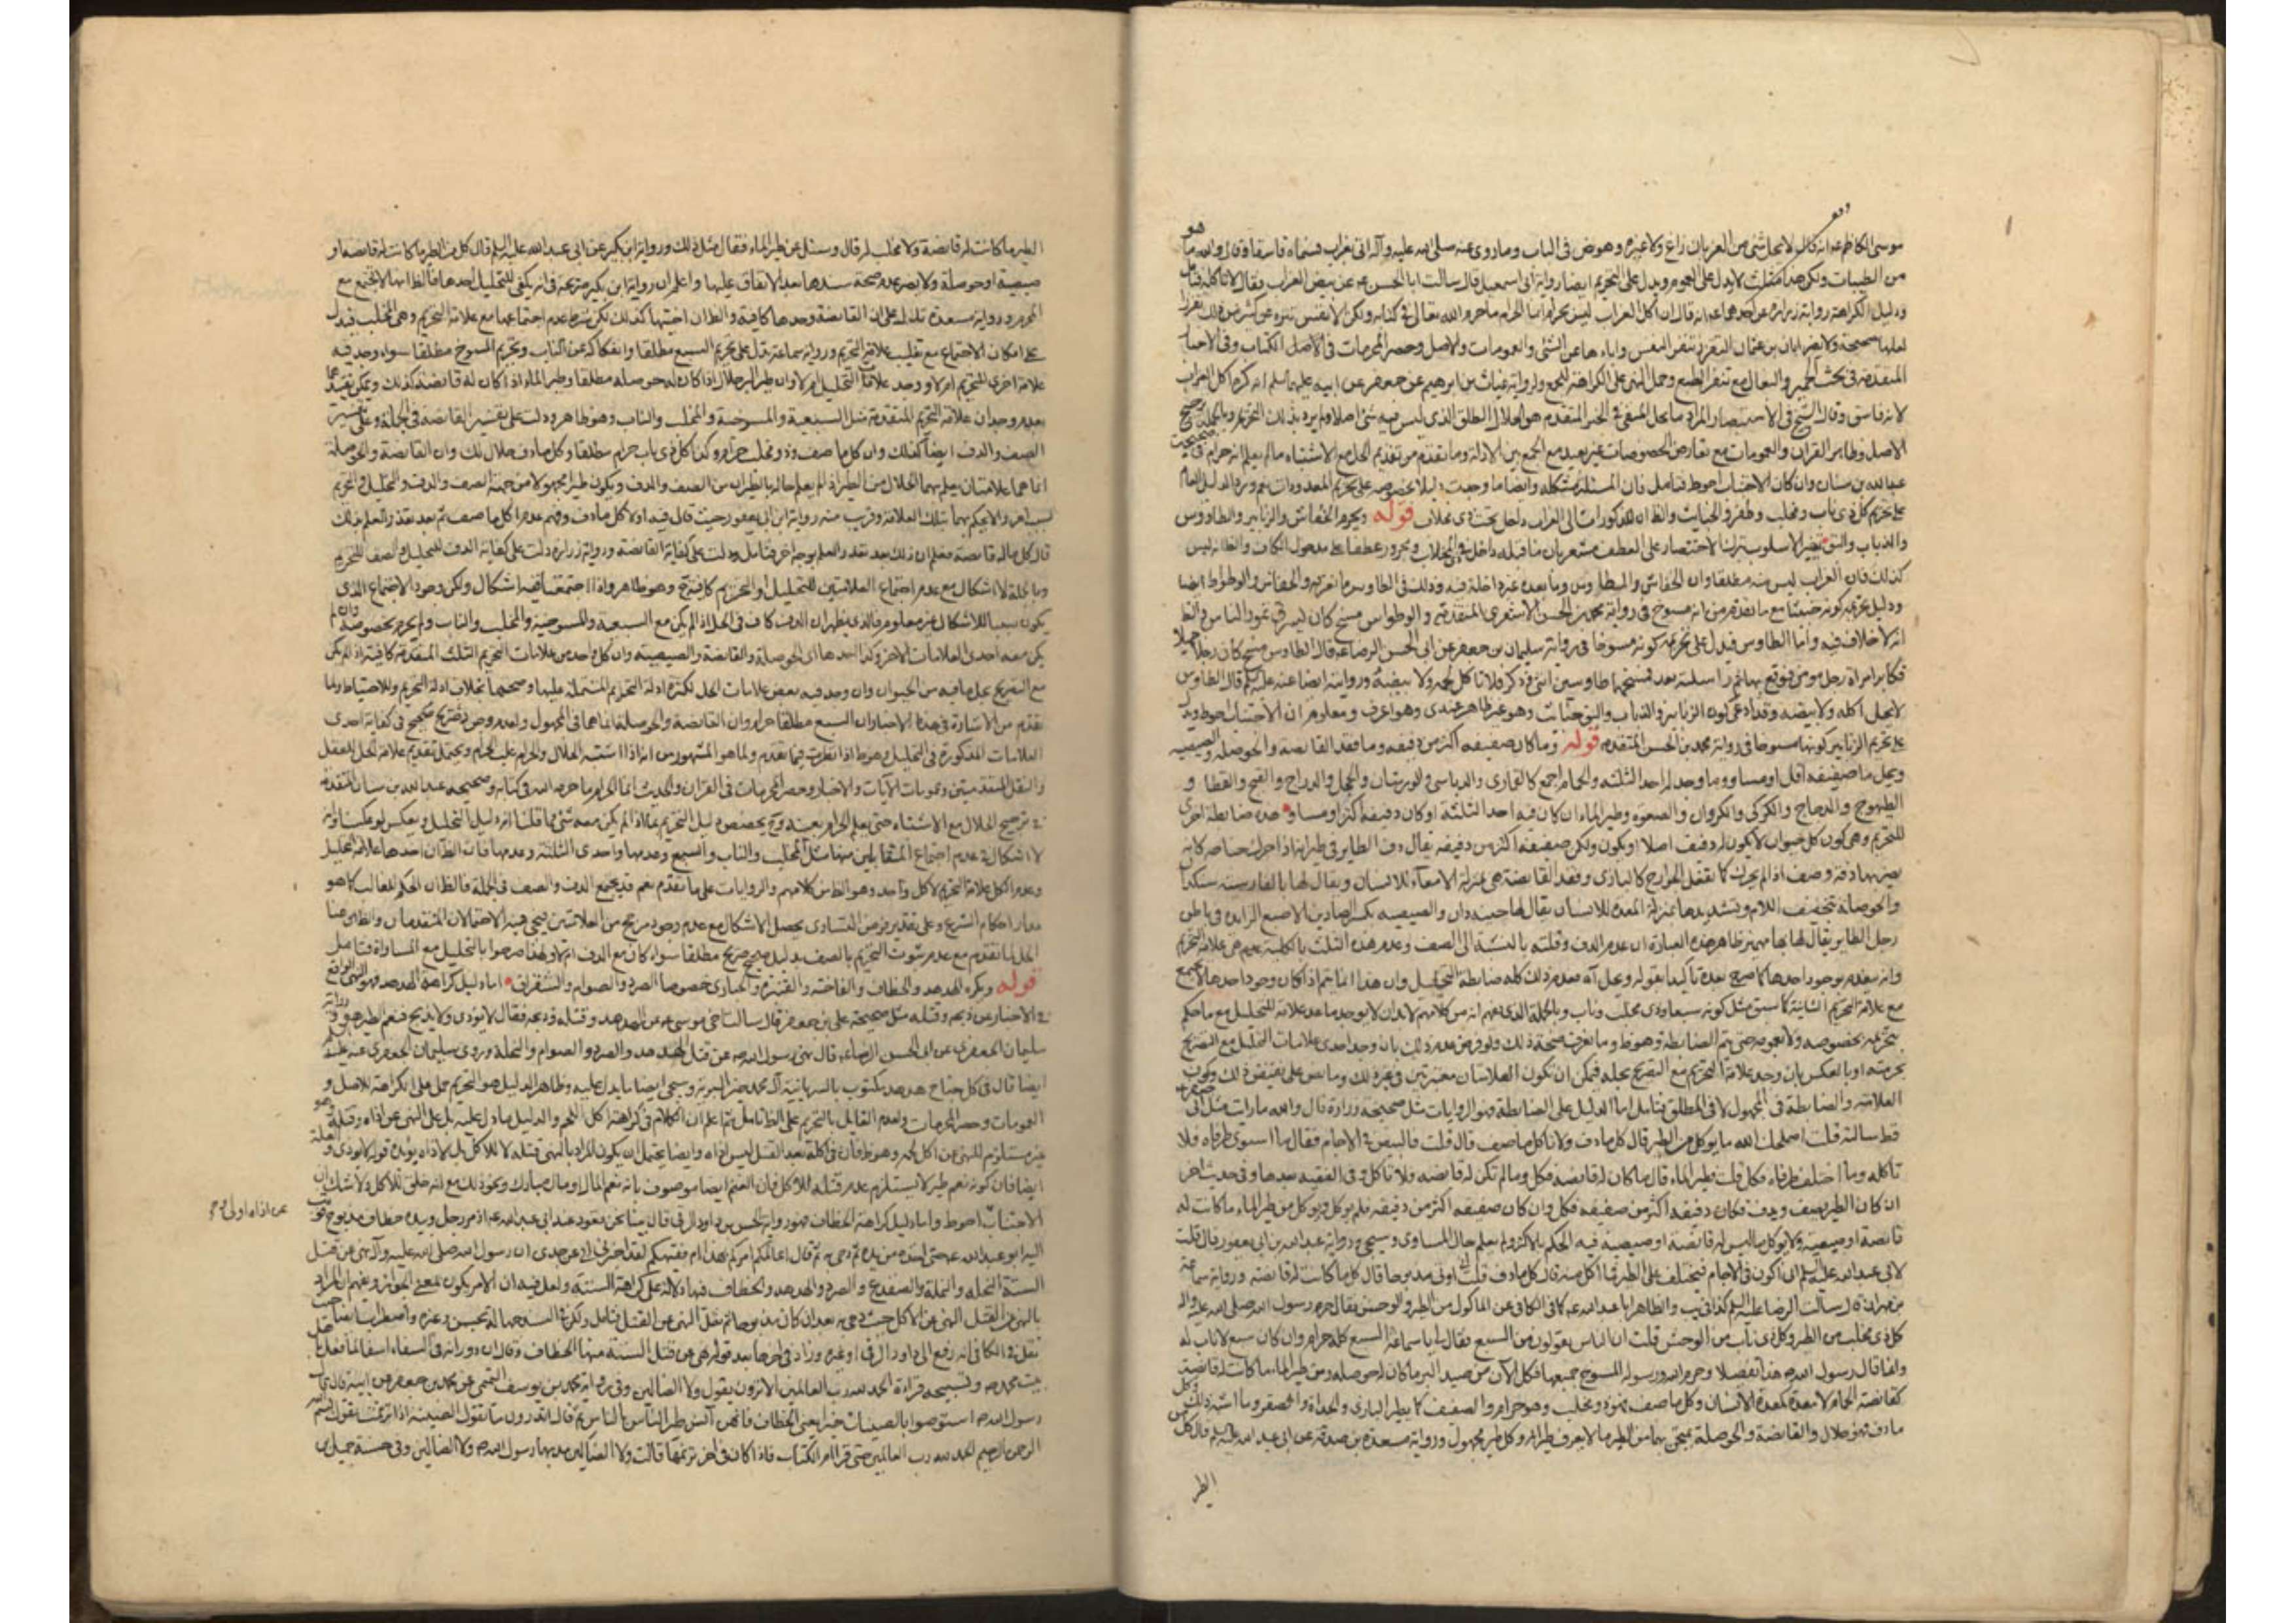 موسى الكاظم عه انه قال لا يحل شئ من الغربان زاغ ولا غيره وهو نص في الباب وما روى عنه صلى الله عليه وآله اتى بغراب فسماه فاسقا وقال والله ما هو
من الطيبات ولكن هذا لا يدل على العموم ويدل على التحريم ايضا رواية ابى اسمعيل قال سالت ابا الحسن عه عن بيض الغراب فقال لا تاكله فتامل
ودليل الكراهة رواية زرارة عن احدهما عه انه قال ان اكل الغراب ليس بحرام انما الحرام ما حرم الله تعالى في كتابه ولكن الانفس تتنزه عن كثير من ذلك تقززا
لعلها صحيحة ولا يضر ابان بن عثمان التقزز تنفر النفس واباءها عن الشئ والعمومات والاصل وحصر المحرمات في الاصل الكتاب وفي الاخبار
المتقدمة في بحث الحمير والبغال مع تنفر الطبع وحمل النهى على الكراهة للجمع ولرواية غياث بن ابرهيم عن جعفر عن ابيه عليهما السلم انه كره اكل الغراب
لانه فاسق وقال الشيخ في الاستبصار المراد ما يحل المنفى في الخبر المتقدم هو الحلال الطلق الذى ليس فيه شئ اصلا ولم يرد بذلك التحريم
الاصل وظاهر القران والعمومات مع تعارض الخصوصات غير بعيد مع الجمع بين الادلة وما تقدم من تقديم الحل مع الاشتباه مالم يعلم انه حرام في
عبد الله بن سنان وان كان الاجتناب احوط فتامل فان المسئلة مشكلة وايضا ما وجدت دليلا بخصوصه على تحريم المعدودات نعم ورد الدليل العام
على تحريم كل ذى ناب ومخلب وظفر والخبايث والظ ان المذكورات الى الغراب داخل تحت ذى مخلاب قوله ويحرم الخفاش والزنابير والطاووس
والذباب والبق تغير الاسلوب بترك الاختصار على العطف مشعر بان ما قبله داخل في المخلاب ومجرور عطفا على مدخول الكاف والظ انه ليس
كذلك فان الغراب ليس منه مطلقا وان الخفاش والطاوس وما بعده غير داخلة فيه وذلك في الطاوس ما نعرفه والخفاش والوطواط ايضا
ودليل تحريمه كونه خبيثا مع ما تقدم من انه مسوخ في رواية محمد بن الحسن الاشعرى المتقدمة والوطواس مسخ كان يسرق تمور الناس والظ
انه لا خلاف فيه واما الطاوس فيدل على تحريمه كونه مسوخا في رواية سليمان بن جعفر عن ابى الحسن الرضا عه قال الطاوس مسخ كان رجلا جميلا
فكابر امراة رجل مومن فوقع بها ثم راسلته بعد فمسخهما طاوسين انثى وذكر فلا تاكل لحمه ولا بيضه وروايته ايضا عنه عليه السلم قال الطاوس
لا يحل اكله ولا بيضه وقد ادعى كون الزنابير والذباب والبق خبآئث وهو غير ظاهر عندى وهو اعرف ومعلوم ان الاجتناب احوط ويدل
على تحريم الزنابير كونها مسوخا في رواية محمد بن الحسن المتقدمه قوله وما كان صفيفه اكثر من دفيفه وما فقد القانصة والحوصلة والصيصية
ويحل ما صفيفه اقل او مساو وما وجد له احد الثلثه والحمام اجمع كالقمارى والدباسى والورشان والحجل والدراج والقبج والقطا و
الطيهوج والدجاج والكركى والكروان والصعوه وطير الماء ان كان فيه احد الثلثه او كان دفيفه اكثر او مساو هذه ضابطة اخرى
للتحريم وهى كون كل حيوان لا يكون له دفيف اصلا او يكون ولكن صفيفه اكثر من دفيفه يقال دف الطاير في طيرانه اذا حرك جناحه كانه
يضر بهما دفه وصف اذا لم يحرك كما يفعل الجوارح كالبازى وفقد القانصة هى بمنزلة الامعآء للانسان ويقال لها بالفارسيه سنكدان
والحوصلة تخفيف اللام وتشديدها بمنزلة المعدة للانسان يقال لها جينه دان والصيصيه بكسر الصادين الاصبع الزايدة في باطن
رجل الطاير يقال لها بها مهميز ظاهر هذه العبارة ان عدم الدف وقلته بالنسبة الى الصف وعدم هذه الثلث بالكلية علامة التحريم
وانه ينعدم بوجود احدها كما صرح بعده تاكيدا بقوله وعلى انه عدم ذلك كله ضابطة للتحليل وان هذا انما يتم اذا كان وجود احدها لا يجتمع
مع علامة التحريم الثابتة كما سبق مثل كونه سبعا وذى مخلب وناب وبالجملة الذى نفهم انه من كلامهم لا بد ان لا يوجد ما عد علامة للتحليل مع ما حكم
بتحريمه بخصوصه ولا بعمومه حتى يتم الضابطة وهو ظ وما نعرف صحة ذلك ولو فرض عدم ذلك بان وجد احدى علامات التحليل مع التصريح
بحرمته او بالعكس بان وجد علامة التحريم مع التصريح بحله فيمكن ان تكون العلامتان معتبرتين في غير ذلك وما نص على نقيضه ذلك ويكون
العلامة والضابطة في المجهول لا في المطلق فتامل اما الدليل على الضابطة فهو الروايات مثل صحيحة زرارة قال والله ما رايت مثل ابى جعفر عه
قط سالته قلت اصلحك الله ما يوكل من الطير قال كل ما دف ولا تاكل ما صف قال قلت فالبيض في الاجام فقال ما استوى طرفاه فلا
تاكله وما اختلف طرفاه فكل قلت فطير الماء قال ما كان له قانصة فكل وما لم تكن له قانصه فلا تاكل وفى الفقيه بعدها وفي حديث اخر
ان كان الطير يصف ويدف فكان دفيفه اكثر من صفيفه فكل وان كان صفيفه اكثر من دفيفه فلم يوكل ويوكل من طير الماء ما كانت له
قانصة او صيصية ولا يوكل ما ليس له قانصة او صيصية فيه الحكم بالاكثر ولم يعلم حال المساوى وسيجى ورواية عبد الله بن ابى يعفور قال قلت
لابى عبد الله عليه السلم انى اكون في الاجام فيختلف على الطير فما اكل منه قال كل ما دف قلت انى اوتى مذبوحا قال كل ما كانت له قانصه ورواية سماعة
بن مهران قال سالت الرضا عليه السلم كذا في يب والظاهر ابا عبد الله عه كما في الكافى عن الماكول من الطير والوحش فقال حرم رسول الله صلى الله عليه واله
كل ذى مخلب من الطير وكل ذى ناب من الوحش قلت ان الناس يقولون من السبع فقال لى يا سماعة السبع كله حرام وان كان سبع لا ناب له
وانما قال رسول الله صه هذا تفصيلا وحرم الله ورسوله المسوخ جميعها فكل الآن من صيد البر ما كان له حوصله ومن طير الماء ما كانت له قانصة
كقانصة الحمام لا معدة كمعدة الانسان وكل ما صف فهو ذو مخلب وهو حرام والصفيف كما يطير البازى والحداة والصقر وما اشبه ذلك وكل
ما دف فهو حلال والقانصة والحوصلة يمتحن بها من الطير ما لا يعرف طيرانه وكل طير مجهول ورواية مسعدة بن صدقه عن ابى عبد الله عليه السلم قال كل من
الطير
الطير ما كانت له قانصة ولا مخلب له قال وسئل عن طير الماء فقال مثل ذلك ورواية ابن بكير عن ابى عبد الله عليه السلم قال كل من الطير ما كانت له قانصه او
صيصية او حوصلة ولا يضر عدم صحة سندها بعد الاتفاق عليها واعلم ان رواية ابن بكير صريحة في انه يكفى للتحليل احدها فالظ انها لا تجتمع مع
المحرم ورواية مسعدة تدل على ان القانصة وحدها كافية والظ ان اختيها كذلك لكن بشرط عدم اجتماعها مع علامة التحريم وهى المخلب فيدل
على امكان الاجتماع مع تغليب علامة التحريم ورواية سماعة تدل على تحريم السبع مطلقا وانفكاكه عن الناب وتحريم المسوخ مطلقا سواء وجد فيه
علامة اخرى للتحريم ام لا ووجد علامة التحليل ام لا وان طير البر حلال اذا كان له حوصلة مطلقا وطير الماء اذا كان له قانصة كذلك ويمكن تقييدهما
بعدم وجدان علامة التحريم المتقدمة مثل السبعية والمسوخية والمخلب والناب وهو ظاهر ودلت على تفسير القانصة في الجملة وعلى تفسير
الصف والدف ايضا كذلك وان كل ما صف ذو مخلب حرام وكذا كل ذى ناب حرام مطلقا وكل ما دف حلال كك وان القانصة والحوصلة
انما هما علامتان يعلم بهما الحلال من الطير اذا لم يعلم حاله بالطيران من الصف والدف ويكون طيرا مجهولا من جهة الصف والدف والتحليل والتحريم
بسبب اخر والا يحكم بهما بتلك العلامة وقريب منه رواية ابن ابى يعفور حيث قال فيه اولا كل ما دف وفهم عدم اكل ما صف ثم بعد تعذر العلم بذلك
قال كل ما له قانصة فعلم ان ذلك بعد تعذر العلم بوجه اخر فتامل ودلت على كفاية القانصة ورواية زرارة دلت على كفاية الدف للتحليل والصف للتحريم
وبالجملة لا اشكال مع عدم اجتماع العلامتين للتحليل والتحريم كافية ح وهو ظاهر واذا اجتمعتا ففيه اشكال ولكن وجود الاجتماع الذى
يكون سببا للاشكال غير معلوم فالذى يظهر ان الدف كاف في الحل اذا لم يكن مع السبعية والمسوخية والمخلب والناب ولم يحرم بخصوصه وان لم
يكن معه احدى العلامات الاخر وكذا احدها اى الحوصلة والقانصة والصيصيه وان كل واحد من علامات التحريم الثلث المتقدمة كافية اذا لم يكن
مع التصريح بحل ما فيه من الحيوان وان وجد فيه بعض علامات الحل لكثرة ادلة التحريم المشتملة عليها وصحتها بخلاف ادلة التحريم وللاحتياط ولما
تقدم من الاشارة في هذه الاخبار ان السبع مطلقا حرام وان القانصة والحوصلة انما هما في المجهول ولعدم وجود صريح صحيح في كفاية احدى
العلامات المذكورة في التحليل وهو ظ اذا نظرت فيما تقدم ولما هو المشهور من انه اذا اشتبه الحلال والحرام غلب الحرام ويحتمل تقديم علامة الحل للعقل
والنقل المتقدمين وعمومات الآيات والاخبار وحصر المحرمات في القران والحديث انما الحرام ما حرمه الله في كتابه وصحيحه عبد الله بن سنان المتقدمة
في ترجيح الحلال مع الاشتباه حتى يعلم الحرام بعينه وح يخصص دليل التحريم بما اذا لم يكن معه شئ مما قلنا انه دليل التحليل وبعكس لو عكسنا وانه
لا اشكال في عدم اجتماع المتقابلين منها مثل المخلب والناب والسبع وعدمها واحدى الثلثة وعدمها فان الظ ان احدها علامة التحليل
وعدم الكل علامة التحريم لا كل واحد وهو الظ من كلامهم والروايات على ما تقدم نعم قد يجتمع الدف والصف في الجملة فالظ ان الحكم للغالب كما هو
مدار احكام الشرع وعلى تقدير فرض التساوى يحصل الاشكال مع عدم وجود مرجح من العلامتين فيجى فيه الاحتمالان المتقدمان والظاهر هنا
الحل لما تقدم مع عدم ثبوت التحريم بالصف بدليل صحيح صريح مطلقا سواء كان مع الدف ام لا ولهذا صرحوا بالتحليل مع المساواة فتامل
قوله ويكره الهدهد والخطاف والفاختة والقبرة والحبارى خصوصا الصرد والصوام والشقراق اما دليل كراهة الهدهد فهو النهى الواقع
في الاخبار عن ذبحه وقتله مثل صحيحة على بن جعفر قال سالت اخى موسى عه عن الهدهد وقتله وذبحه فقال لا يوذى ولا يذبح فنعم الطير هو ورواية
سليمان الجعفرى عن ابى الحسن الرضا عه قال نهى رسول الله صه عن قتل الهدهد والصرد والصوام والنحلة وروى سليمان الجعفرى عنه عليه السلم
ايضا قال في كل جناح هدهد مكتوب بالسريانية آل محمد خير البرية وسيجى ايضا ما يدل عليه وظاهر الدليل هو التحريم حمل على الكراهة للاصل و
العمومات وحصر المحرمات ولعدم القايل بالتحريم على الظ تامل ثم اعلم ان الكلام في كراهة اكل اللحم والدليل ما دل عليه بل على النهى عن اذاه وقتله وهو
غير مستلزم للنهى عن اكل لحمه وهو ظ فان في اكله بعد القتل ليس اذاه وايضا يحتمل ان يكون المراد بالنهى قتله لا للاكل بل لاذاه يؤيده قوله لا يوذى و
ايضا فان كونه نعم طير لا يستلزم عدم قتله للاكل فان الغنم ايضا موصوف بانه نعم المال او مال مبارك ونحو ذلك مع انه خلق للاكل ولا شك ان
الاجتناب احوط واما دليل كراهة الخطاف فهو رواية الحسن بن داود الرقى قال بينا نحن قعود عند ابى عبد الله عه اذ مر رجل وبيده خطاف مذبوح فوثب
اليه ابو عبد الله عه حتى اخذه من يده ثم دحى به ثم قال اعالمكم امركم بهذا ام فقيهكم لقد اخبرنى ابى عن جدى ان رسول الله صلى الله عليه وآله نهى عن قتل
الستة النحله والنملة والضفدع والصرد والهدهد والخطاف فيها دلالة على كراهة الستة ولعل فيه ان الامر يكون بمعنى الجواز ويفهم ان المراد
بالنهى عن القتل النهى عن الاكل حيث دحى به بعد ان كان مذبوحا ثم نقل النهى عن القتل فتامل ولكن في السند جهالة بحسن وغيره واضطراب ايضا حيث
نقل في الكافى انه رفع الى داود الرقى او غيره وزاد في اخرها بعد قوله نهى عن قتل الستة منها الخطاف وقال ان دورانه في السماء اسفا لما فعل باهل
بيت محمد صه وتسبيحه قراءة الحمد لله رب العالمين الا ترون يقول ولا الضالين وفي رواية محمد بن يوسف التميمى عن محمد بن جعفر عن ابيه قال قال
رسول الله صه استوصوا بالصينيات خيرا يعنى الخطاف فانهن آنس طير الناس بالناس ثم قال اتدرون ما تقول الصينيه اذا ترنمت تقول بسم الله
الرحمن الرحيم الحمد لله رب العالمين حتى قرا ام الكتاب فاذا كان في اخر ترنمها قالت ولا الضالين مد بها رسول الله صه ولا الضالين وفي حسنة جميل بن
عن اذاه اولى